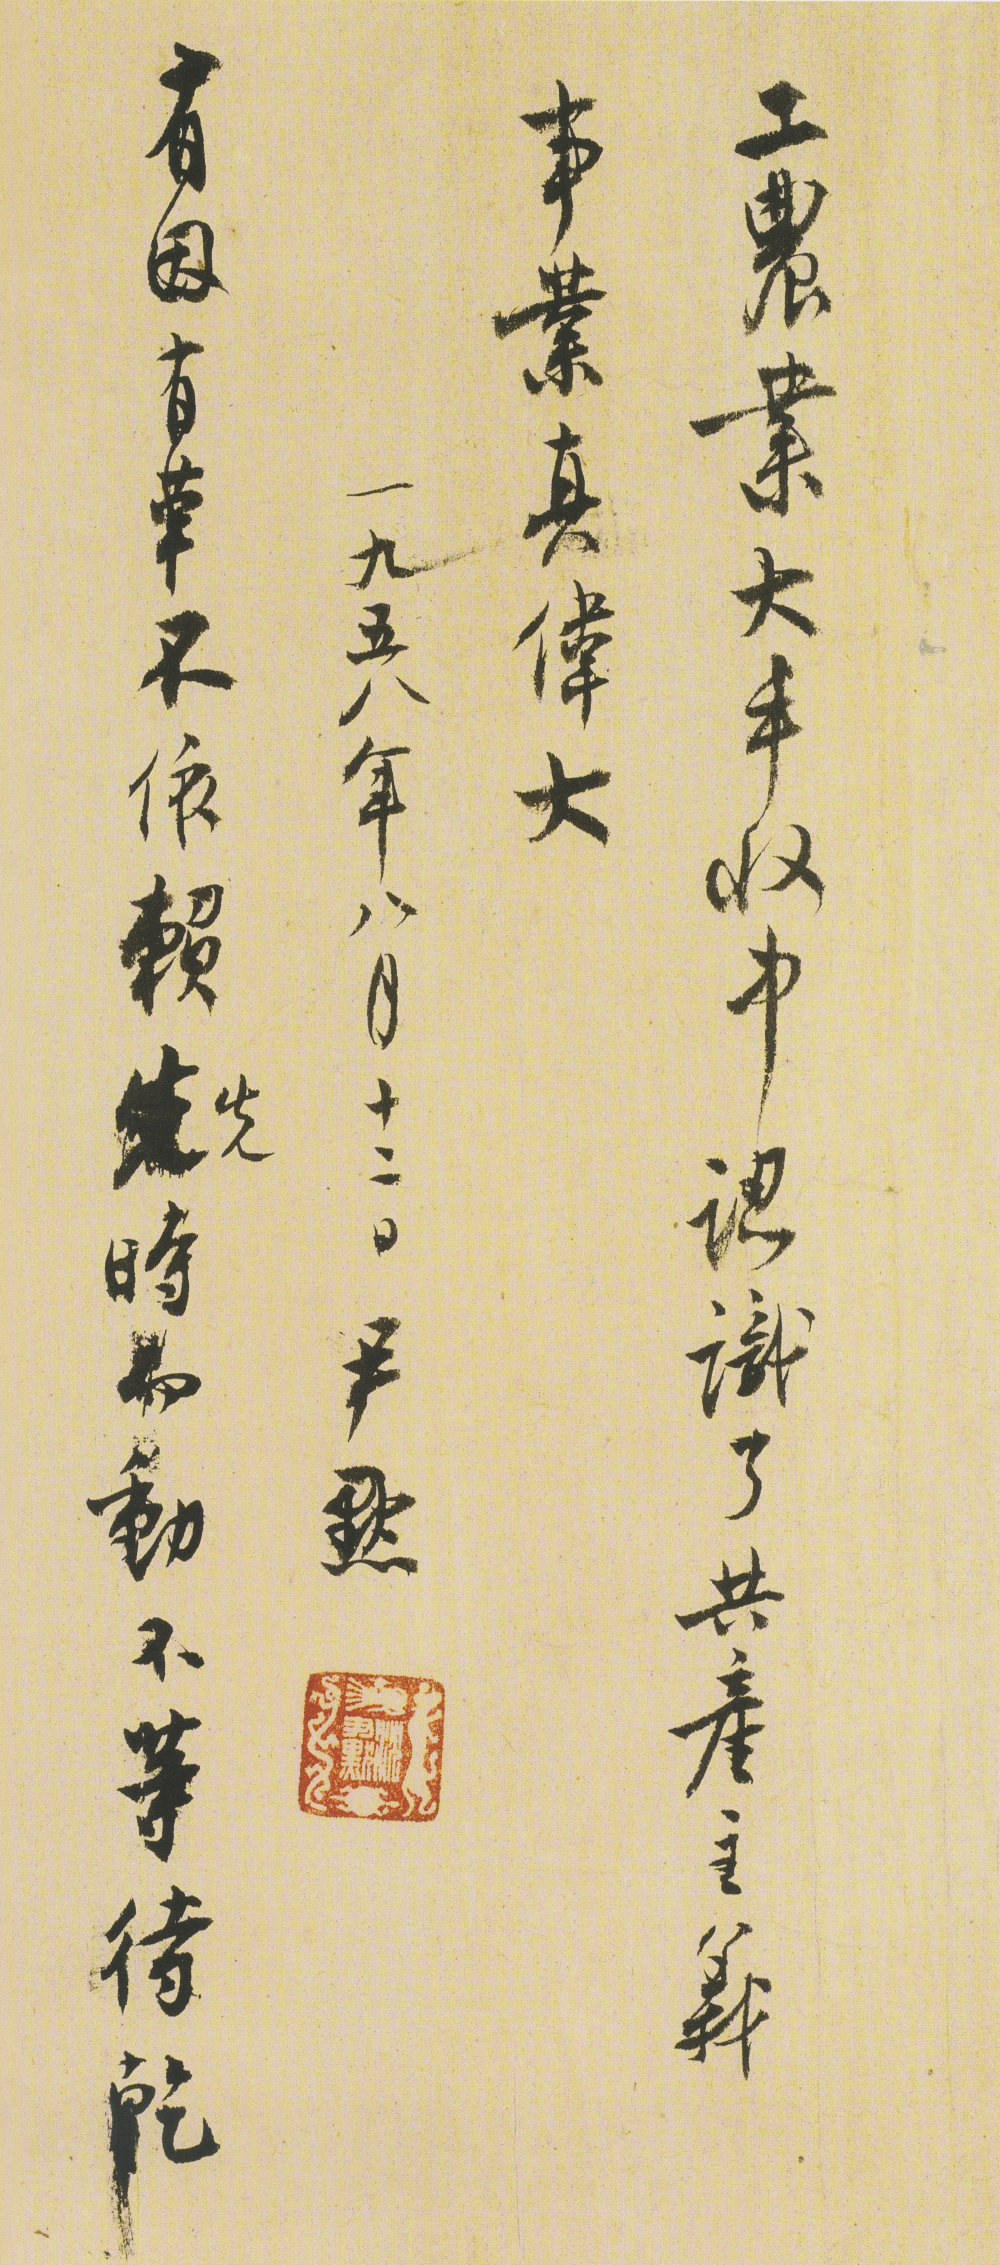 工農業大丰收中認識了共產主義
事業真偉大
一九五八年八月十二日尹默
有因有革不依賴先
先時而動不等待乾